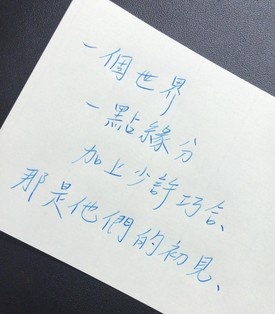 一個世界
一點緣分
加上少許巧合、
那是他們的初見、